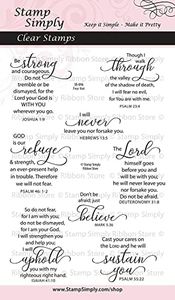 Stamp
Simply
Keep it Simple - Make it Pretty
Clear Stamps
Be
strong
and courageous.
Do not
tremble or be
dismayed, for the
Lord your God is
WITH YOU
wherever you go.
JOSHUA 1:9
Though I
walk
through
the valley
of the shadow of death,
I will fear no evil,
for You are with me.
PSALM 23:4
I will
never
leave you nor forsake you.
HEBREWS 13:5
GOD
is our
refuge
& strength,
an ever-present help
in trouble. Therefore
we will not fear.
PSALM 46:1-2
The
Lord
himself goes
before you and
will be with you; he
will never leave you
nor forsake you.
Do not be afraid;
do not be discouraged.
DEUTERONOMY 31:8
Don't be
afraid; just
believe
MARK 5:36
So do not fear,
for I am with you;
do not be dismayed,
for I am your God.
I will strengthen you
and help you;
I will
uphold
you with my
righteous right hand.
ISAIAH 41:10
Cast your cares on
the LORD and he will
sustain
you
PSALM 55:22
www.StampSimply.com/shop